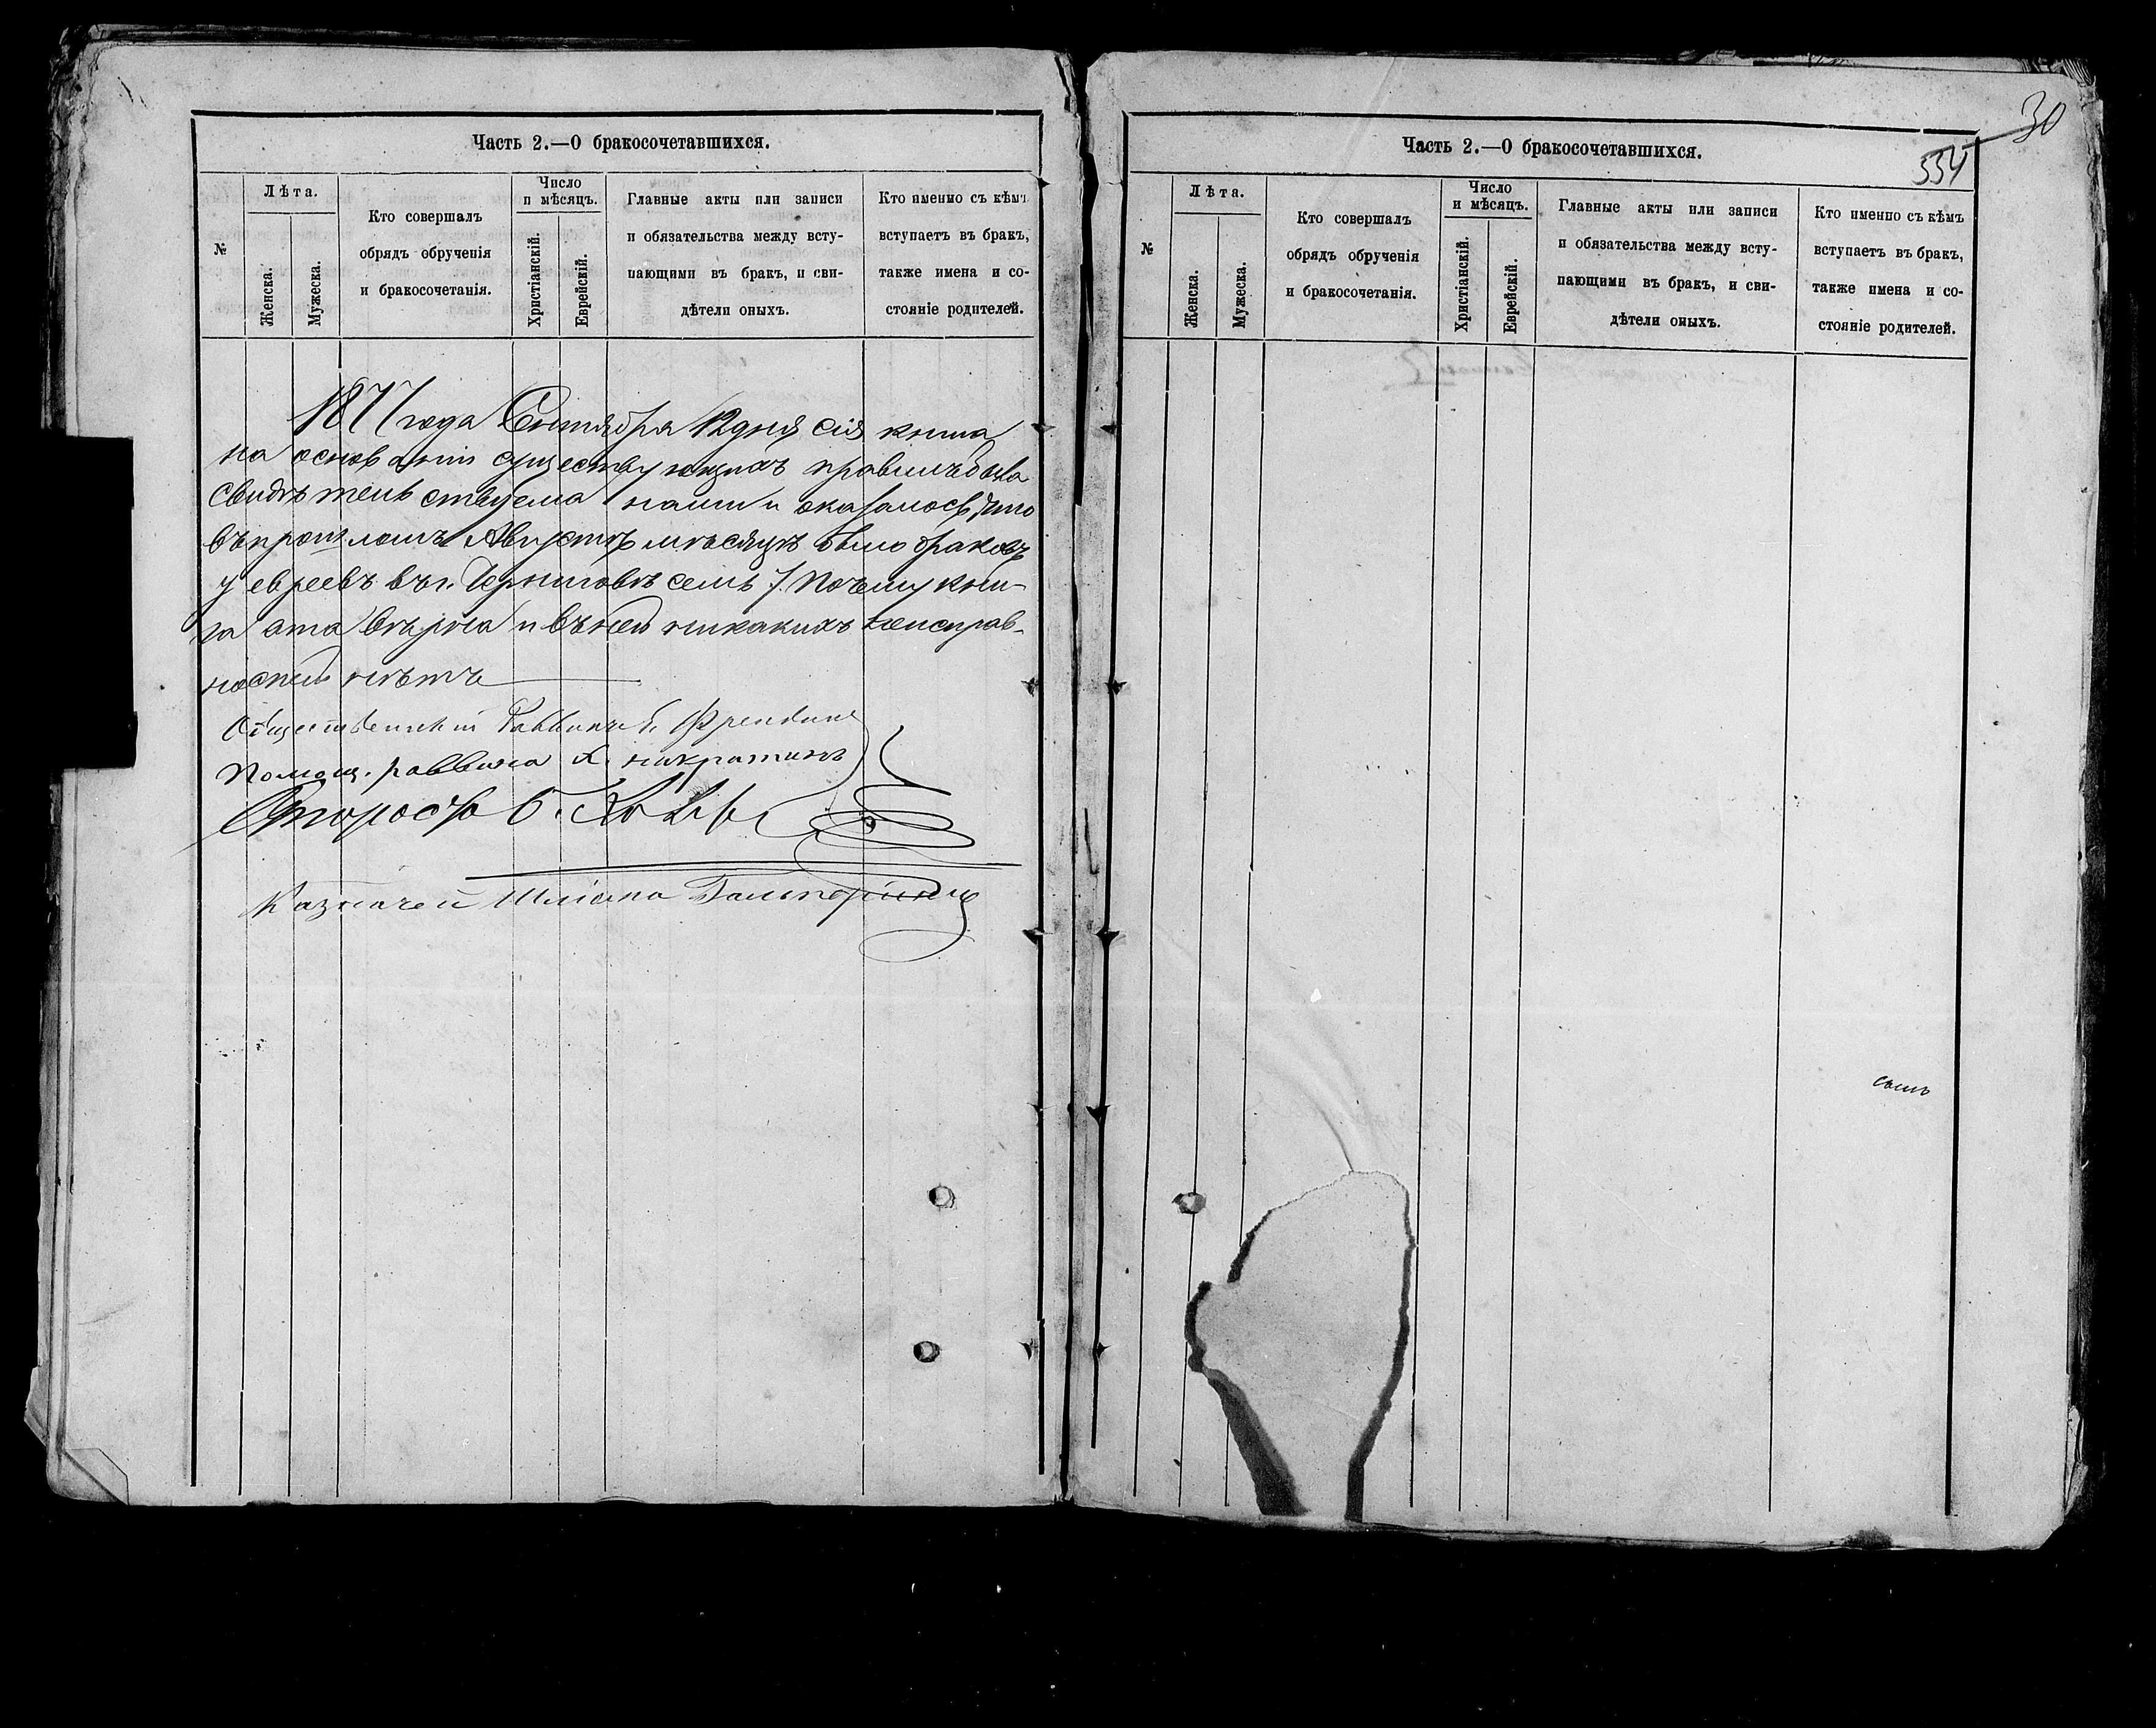 Часть 2.—О бракосочетавшихся.
№
Лѣта.
Женска.
Мужеска.
Кто совершалъ
обрядъ обрученія
и бракосочетанія.
Число
и мѣсяцъ.
Христіанскій.
Еврейскій.
Главные акты или записи
и обязательства между всту-
пающими въ бракъ, и сви-
дѣтели оныхъ.
Кто именно съ кѣмъ
вступаетъ въ бракъ,
также имена и со-
стояніе родителей.
1877 года Сентября 12 дня сія книга
на основаніи существующихъ правилъ была
свидѣтельствуема нами и оказалось, что
въ прошломъ Августѣ мѣсяцѣ было браковъ
у евреевъ въ г. Черниговѣ семь 7. Почему кни-
га эта вѣрна и въ ней никакихъ неисправ-
ностей нѣтъ
Общественный Раввинъ
Помощ. раввина Х.
Староста Б.
Казначей Шліома Гальперинъ
30
334
Часть 2.—О бракосочетавшихся.
№
Лѣта.
Женска.
Мужеска.
Кто совершалъ
обрядъ обрученія
и бракосочетанія.
Число
и мѣсяцъ.
Христіанскій.
Еврейскій.
Главные акты или записи
и обязательства между всту-
пающими въ бракъ, и сви-
дѣтели оныхъ.
Кто именно съ кѣмъ
вступаетъ въ бракъ,
также имена и со-
стояніе родителей.